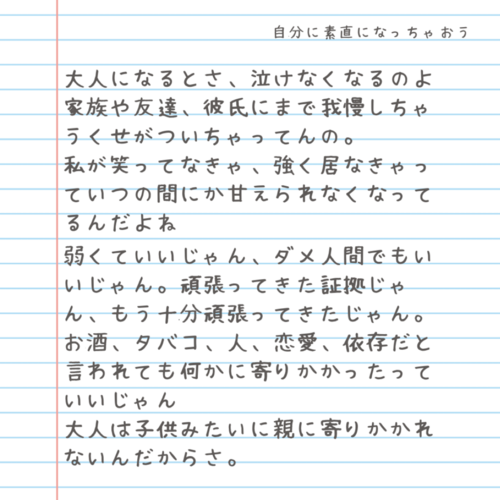 自分に素直になっちゃおう
大人になるとさ、泣けなくなるのよ
家族や友達、彼氏にまで我慢しちゃ
うくせがついちゃってんの。
私が笑ってなきゃ、強く居なきゃっ
ていつの間にか甘えられなくなって
るんだよね
弱くていいじゃん、ダメ人間でもい
いじゃん。頑張ってきた証拠じゃ
ん、もう十分頑張ってきたじゃん。
お酒、タバコ、人、恋愛、依存だと
言われても何かに寄りかかったって
いいじゃん
大人は子供みたいに親に寄りかかれ
ないんだからさ。